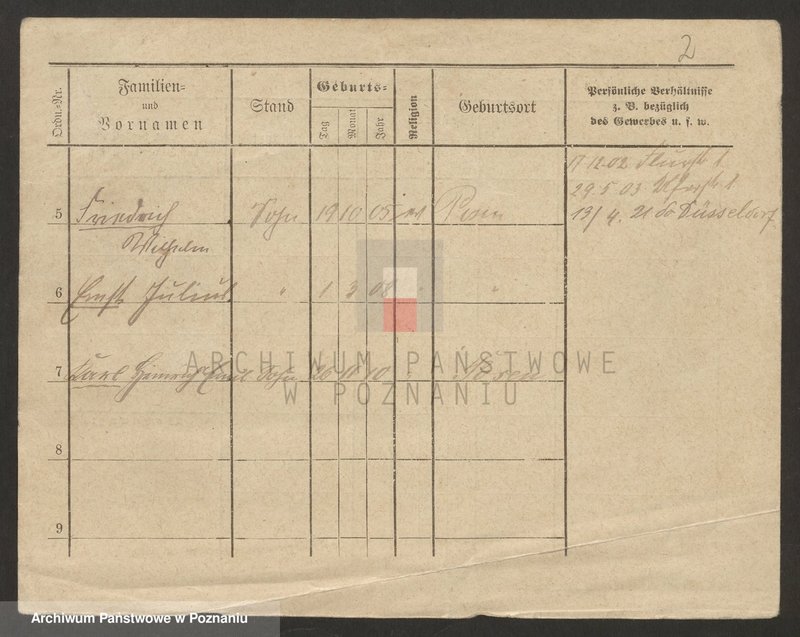 2
Ordn.-Nr.
Familien-
und
Vornamen
Stand
Geburts-
Tag
Monat
Jahr
Religion
Geburtsort
Persönliche Verhältnisse
z. B. bezüglich
des Gewerbes u. s. w.
17 12.02
29 5 03
5 Friedrich Sohn 19 10 05 ev Posen 13/4. 21 Düsseldorf
Wilhelm
6 Ernst Julius " 1 3 08 " "
7 Karl Heinrich Emil Sohn 20 11 10 " Posen
8
9
ARCHIWUM PAŃSTWOWE
W POZNANIU
Archiwum Państwowe w Poznaniu